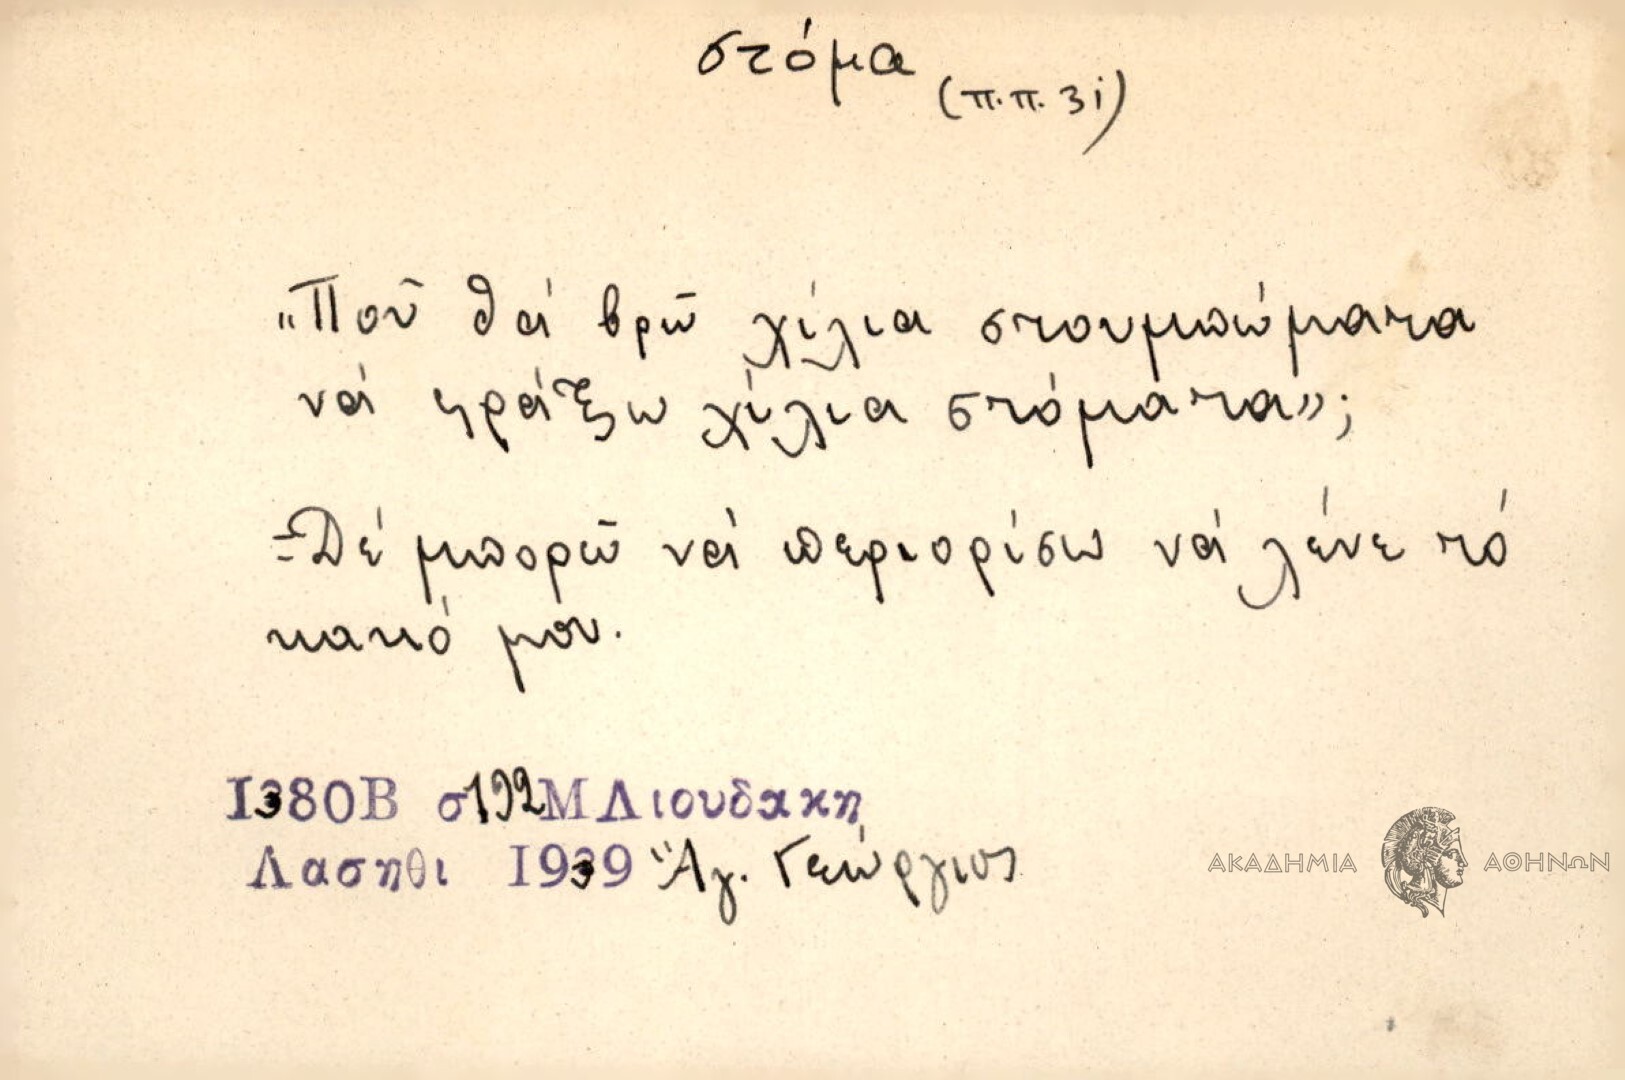 στόμα
(π.π. 3i)
„Ποῦ θά βρῶ χίλια στουμπώματα
νά φράξω χίλια στόματα";
=Δέ μπορῶ νά περιορίσω νά λένε τό
κακό μου.
1380Β σ192 Μ Λιουδακη
Λασηθι 1939 Ἅγ. Γεώργιος
ΑΚΑΔΗΜΙΑ ΑΘΗΝΩΝ